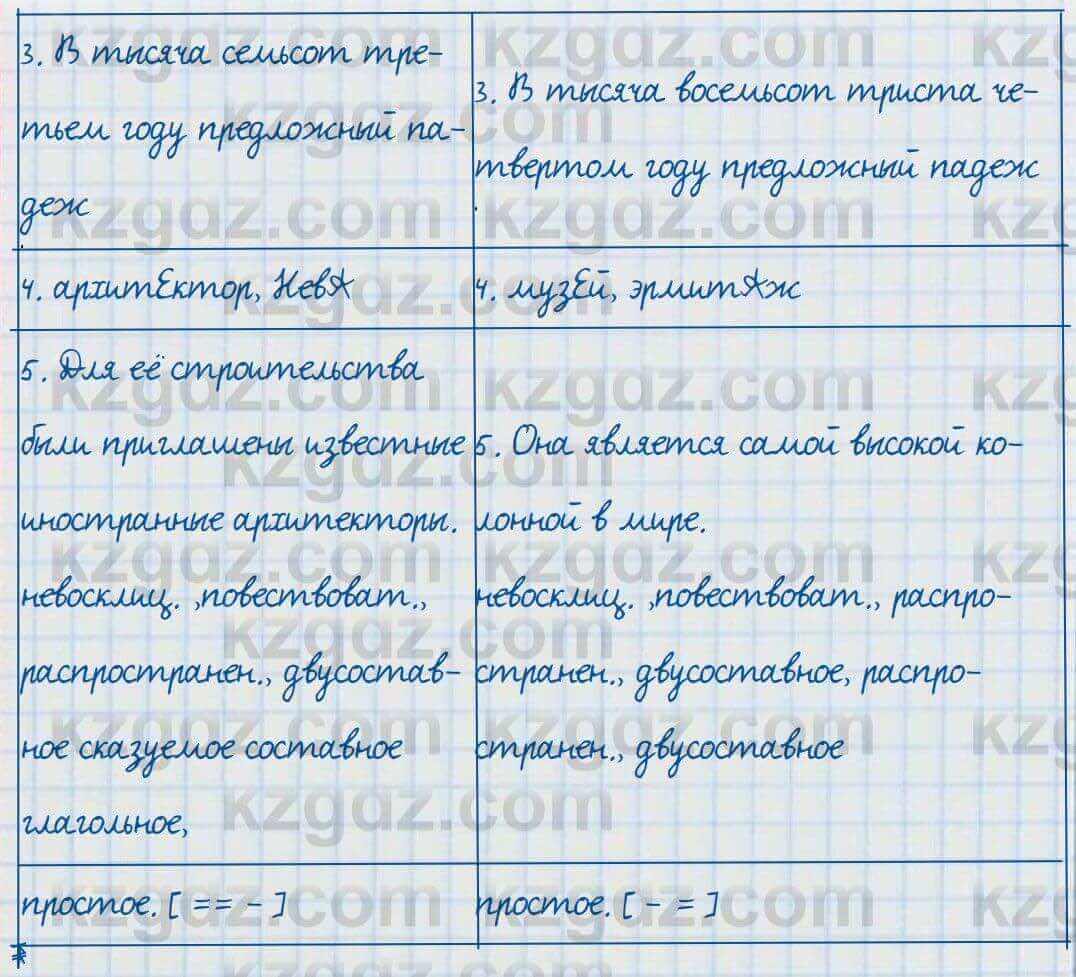 3. В тысяча семьсот тре-
тьем году предложный па-
деж
3. В тысяча восемьсот триста че-
твертом году предложный падеж
4. архитЕктор, НевА
4. музЕй, эрмитАж
5. Для её строительства
были приглашены известные
иностранные архитекторы.
невосклиц. ,повествоват.,
распространен., двусостав-
ное сказуемое составное
глагольное,
5. Она является самой высокой ко-
лонной в мире.
невосклиц. ,повествоват., распро-
странен., двусоставное, распро-
странен., двусоставное
простое. [ == - ]
простое. [ - = ]
kzgdz.com